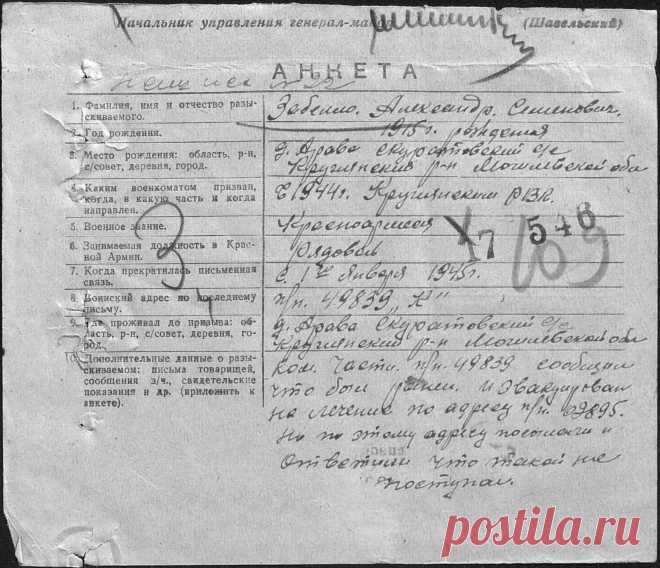 Начальник управления генерал-майор (Шавельский)
АНКЕТА
1. Фамилия, имя и отчество разы-
скиваемого.
Забелло. Александр. Семенович.
2. Год рождения.
1915 г. рождения
3. Место рождения: область, р-н,
с/совет, деревня, город.
д. Арава Скуратовский с/с
Круглянский р-н Могилевской обл
4. Каким военкоматом призван,
когда, в какую часть и когда
направлен.
С 1944 г. Круглянским РВК.
5. Военное звание.
Красноармеец
17 546
6. Занимаемая должность в Крас-
ной Армии.
Рядовой
7. Когда прекратилась письменная
связь.
с. 1го Января 1945 г.
8. Воинский адрес по последнему
письму.
п/п. 49839 "К"
9. Где проживал до призыва: об-
ласть, р-н, с/совет, деревня, го-
род.
д. Арава Скуратовский с/с
Круглянский р-н Могилевской обл
10. Дополнительные данные о разы-
скиваемом: письма товарищей,
сообщения з/ч., свидетельские
показания и др. (приложить к
анкете).
ком. Части. п/п. 49839 сообщил
что был ранен. и Эвакуирован
на лечение по адресу п/п. 02895.
Но по этому адресу посылали и
Ответили что такой не
поступал.
3
postila.ru